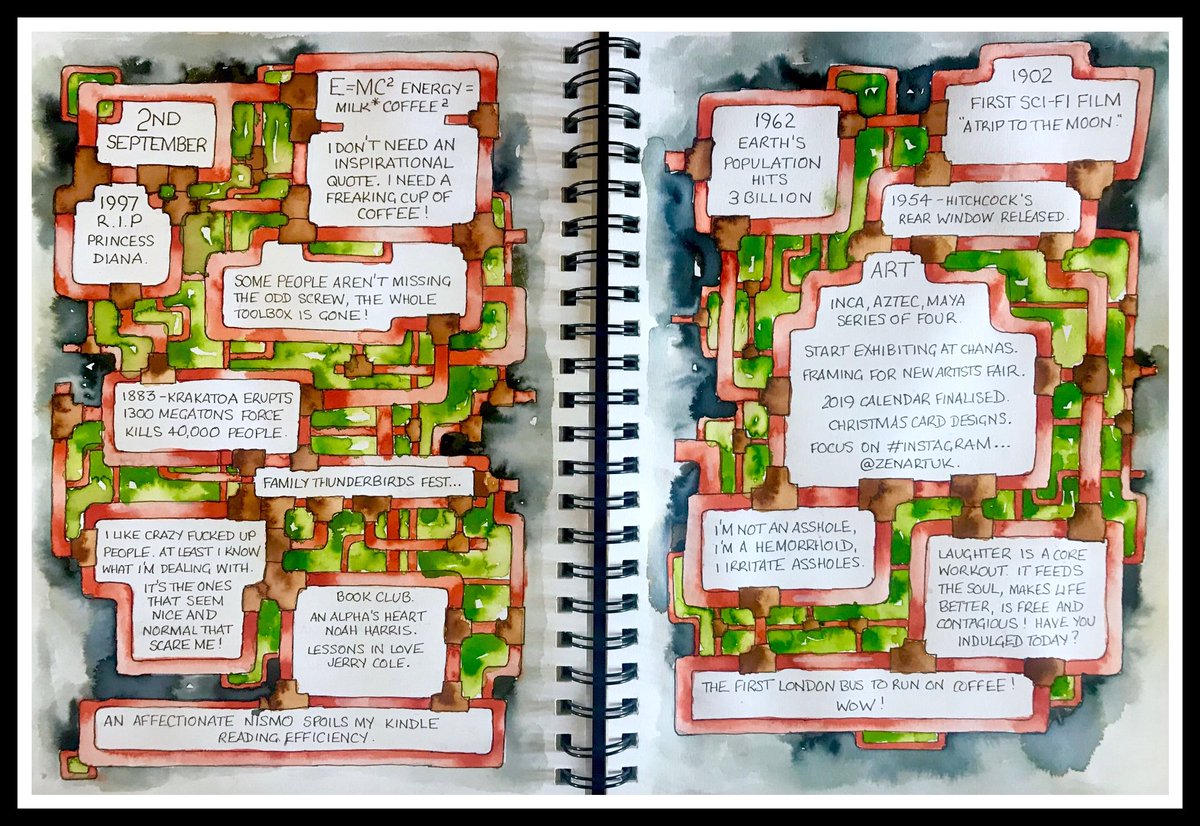 2ND
SEPTEMBER
E=MC² ENERGY =
MILK* COFFEE²
I DON'T NEED AN
INSPIRATIONAL
QUOTE. I NEED A
FREAKING CUP OF
COFFEE!
1997
R.I.P
PRINCESS
DIANA.
SOME PEOPLE AREN'T MISSING
THE ODD SCREW, THE WHOLE
TOOLBOX IS GONE!
1883-KRAKATOA ERUPTS
1300 MEGATONS FORCE
KILLS 40,000 PEOPLE.
FAMILY THUNDERBIRDS FEST...
I LIKE CRAZY FUCKED UP
PEOPLE. AT LEAST I KNOW
WHAT I'M DEALING WITH.
IT'S THE ONES
THAT SEEM
NICE AND
NORMAL THAT
SCARE ME!
BOOK CLUB.
AN ALPHA'S HEART
NOAH HARRIS.
LESSONS IN LOVE
JERRY COLE.
AN AFFECTIONATE NISMO SPOILS MY KINDLE
READING EFFICIENCY.
1962
EARTH'S
POPULATION
HITS
3 BILLION
1902
FIRST SCI-FI FILM
"A TRIP TO THE MOON."
1954 - HITCHCOCK'S
REAR WINDOW RELEASED.
ART
INCA, AZTEC, MAYA
SERIES OF FOUR.
START EXHIBITING AT CHANAS.
FRAMING FOR NEW ARTISTS FAIR.
2019 CALENDAR FINALISED.
CHRISTMAS CARD DESIGNS.
FOCUS ON #INSTAGRAM...
@ZENARTUK.
I'M NOT AN ASSHOLE,
I'M A HEMORRHOID,
I IRRITATE ASSHOLES.
LAUGHTER IS A CORE
WORKOUT. IT FEEDS
THE SOUL, MAKES LIFE
BETTER, IS FREE AND
CONTAGIOUS! HAVE YOU
INDULGED TODAY?
THE FIRST LONDON BUS TO RUN ON COFFEE!
WOW!